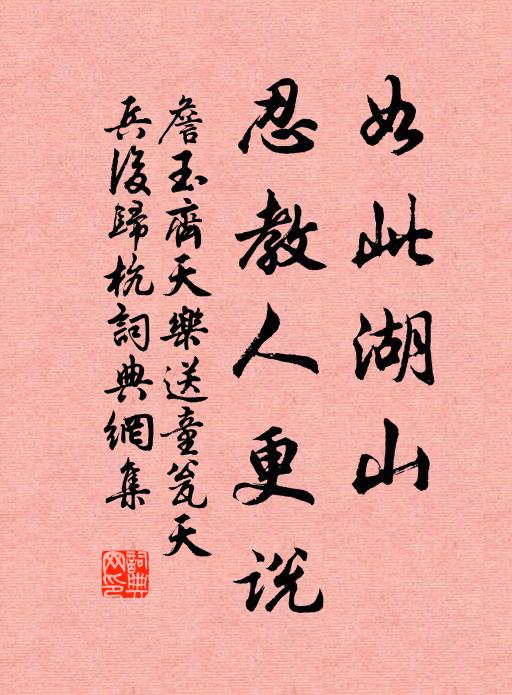 如此湖山
忍教人更说
詹玉齊天樂送童瓮天
兵後歸杭詞典網集
詞典
网印